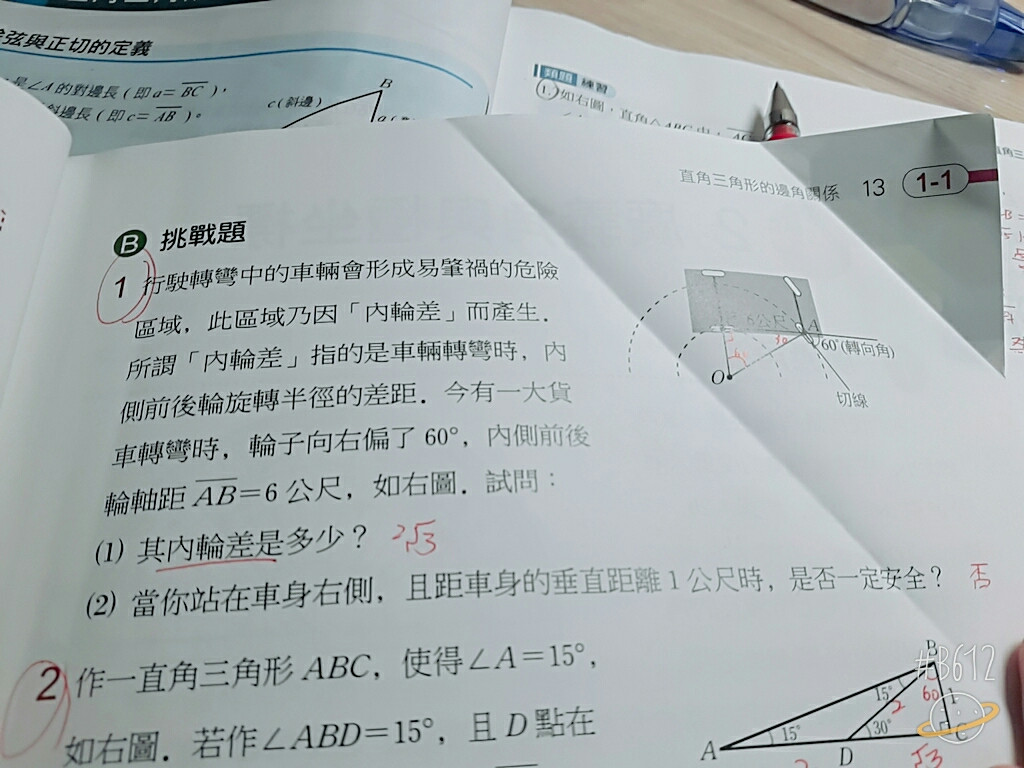 弦與正切的定義
是∠A的對邊長(即a=BC),
斜邊長(即c=AB)。
c(斜邊)
B
類題 練習
1. 如右圖,直角△ABC中,
直角三角形的邊角關係 13 1-1
B 挑戰題
1 行駛轉彎中的車輛會形成易肇禍的危險
區域,此區域乃因「內輪差」而產生.
所謂「內輪差」指的是車輛轉彎時,內
側前後輪旋轉半徑的差距.今有一大貨
車轉彎時,輪子向右偏了60°,內側前後
輪軸距AB=6公尺,如右圖.試問:
6公尺
A
60°(轉向角)
O
切線
(1) 其內輪差是多少? 2√3
(2) 當你站在車身右側,且距車身的垂直距離1公尺時,是否一定安全? 否
2 作一直角三角形ABC,使得∠A=15°,
如右圖.若作∠ABD=15°,且D點在
B
#B612
15°
2
60
1
A
15°
D
30°
C
√3